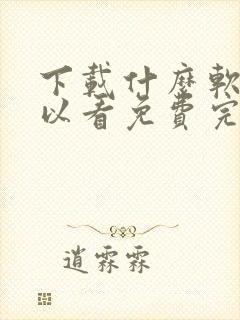 下載什麼軟
以看免費完
逍霖霖